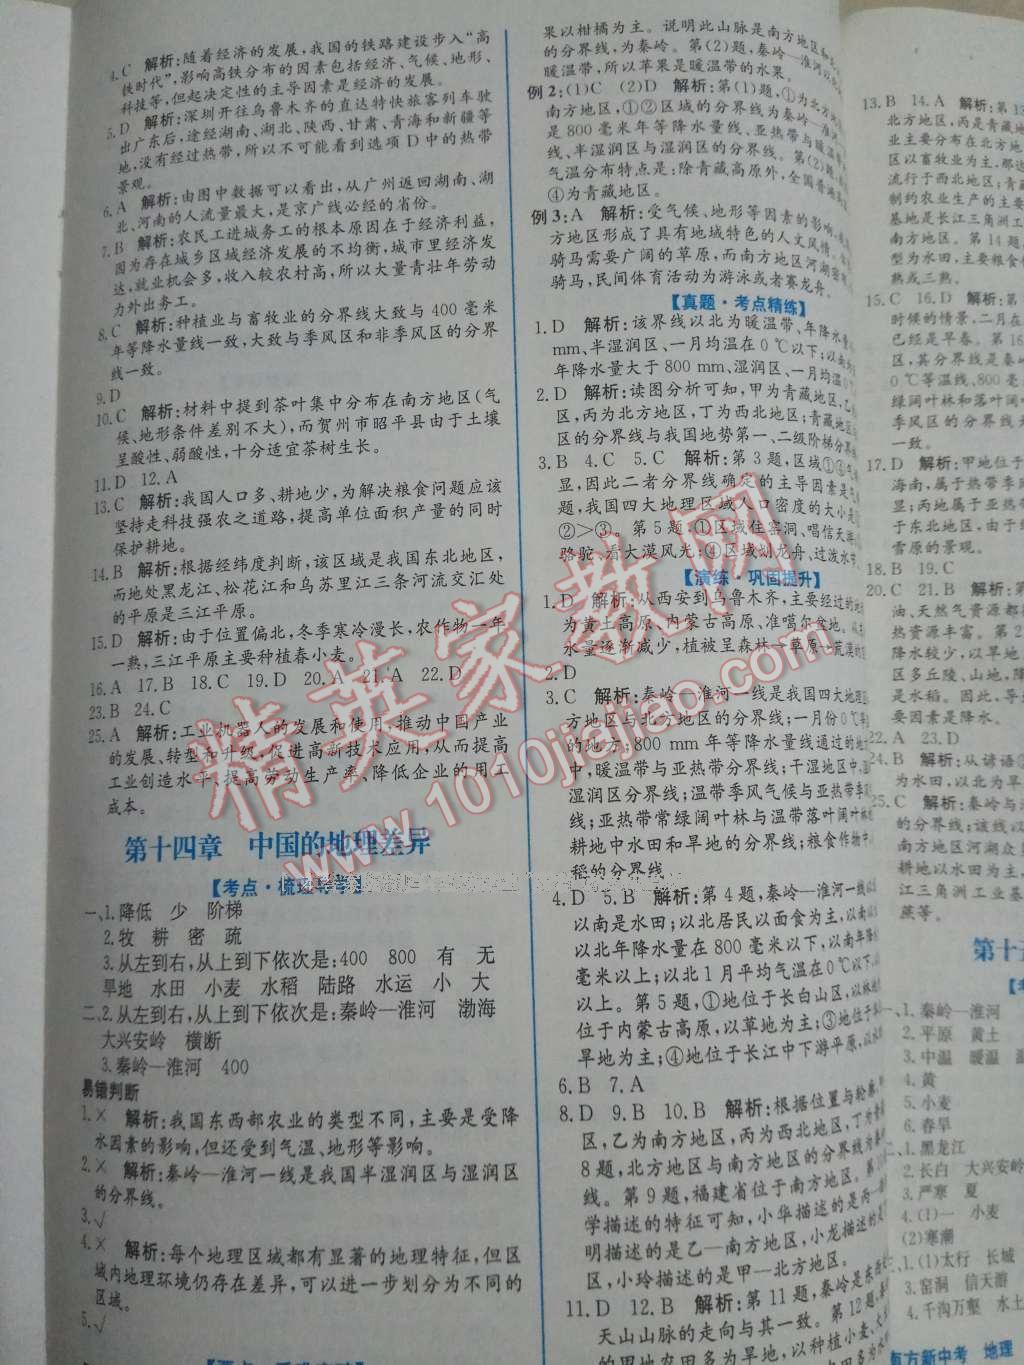 4.C 解析:随着经济的发展,我国的铁路建设步入“高
铁时代”,影响高铁分布的因素包括经济、气候、地形、
科技等,但起决定性的主导因子是经济的发展。
5.D 解析:深圳开往乌鲁木齐的直达特快旅客列车驶
出广东后,途经湖南、湖北、陕西、甘肃、青海和新疆等
地,没有经过热带,所以不可能看到选项D中的热带
景观。
6.A 解析:由图中数据可以看出,从广州返回湖南、湖
北、河南的人流量最大,是京广线必经的省份。
7.B 解析:农民工进城务工的根本原因在于经济利益,
因为存在城乡区域经济发展的不均衡,城市里经济发
达,就业机会多,收入较农村高,所以大量青壮年劳动
力外出务工。
8.C 解析:种植业与畜牧业的分界线大致与400毫米
年等降水量线一致,大致与季风区和非季风区的分界
线一致。
9.D
10.C 解析:材料中提到茶叶集中分布在南方地区(气
候、地形条件差别不大),而贺州市昭平县由于土壤
呈酸性、弱酸性,十分适宜茶树生长。
11.D 12.A
13.C 解析:我国人口多、耕地少,为解决粮食问题应该
坚持走科技强农之道路,提高单位面积产量的同时
保护耕地。
14.B 解析:根据经纬度判断,该区域是我国东北地区,
而地处黑龙江、松花江和乌苏里江三条河流交汇处
的平原是三江平原。
15.D 解析:由于位置偏北,冬季寒冷漫长,农作物一年
一熟,三江平原主要种植春小麦。
16.A 17.B 18.C 19.D 20.A 21.A 22.D
23.B 24.C
25.A 解析:工业机器人的发展和使用,推动中国产业
的发展、转型和升级,促进高新技术应用,从而提高
工业创造水平、提高劳动生产率、降低企业的用工
成本。
第十四章 中国的地理差异
【考点·梳理导学】
一、1.降低 少 阶梯
2.牧 耕 密 疏
3.从左到右,从上到下依次是:400 800 有 无
旱地 水田 小麦 水稻 陆路 水运 小 大
二、2.从左到右,从上到下依次是:秦岭—淮河 渤海
大兴安岭 横断
3.秦岭—淮河 400
易错判断
1.× 解析:我国东西部农业的类型不同,主要是受降
水因素的影响,但还受到气温、地形等影响。
2.× 解析:秦岭—淮河一线是我国半湿润区与湿润区
的分界线。
3.√
4.× 解析:每个地理区域都有显著的地理特征,但区
域内地理环境仍存在差异,可以进一步划分为不同的
区域。
5.√
果以柑橘为主。说明此山脉是南方地区和
的分界线,为秦岭。第(2)题,秦岭—淮河以
暖温带,所以苹果是暖温带的水果。
例2:(1)C (2)D 解析:第(1)题,①为北方
南方地区,①②区域的分界线为秦岭—淮河
是800毫米年等降水量线、亚热带与暖温
线、半湿润区与湿润区的分界线。第(2)题,
气温分布特点是:除青藏高原外,全国普遍
④为青藏地区。
例3:A 解析:受气候、地形等因素的影响,
方地区形成了具有地域特色的人文风情。
骑马需要广阔的草原,而南方地区河湖密
骑马,民间体育活动为游泳或者赛龙舟。
【真题·考点精练】
1.D 解析:该界线以北为暖温带、年降水量
mm、半湿润区、一月均温在0℃以下;以南
年降水量大于800 mm,湿润区、一月均温
2.D 解析:读图分析可知,甲为青藏地区,乙
区,丙为北方地区,丁为西北地区;青藏地区
区的分界线与我国地势第一、二级阶梯分界
3.B 4.C 5.C 解析:第3题,区域①④气
显,因此二者分界线确定的主导因素是气
题,我国四大地理区域人口密度的大小是
②>③。 第5题,①区域住窑洞、唱信天
骆驼、看大漠风光;④区域划龙舟、过泼水
【演练·巩固提升】
1.D 解析:从西安到乌鲁木齐,主要经过的地
为黄土高原、内蒙古高原、准噶尔盆地。
水量逐渐减少,植被呈森林—草原—荒漠的
2.D
3.C 解析:秦岭—淮河一线是我国四大地理
方地区与北方地区的分界线;一月份0℃等
的地方;800 mm年等降水量线通过的地方
中,暖温带与亚热带分界线;干湿地区中,湿
湿润区分界线;温带季风气候与亚热带季
线;亚热带常绿阔叶林与温带落叶阔叶林
耕地中水田和旱地的分界线;粮食作物中
稻的分界线。
4.D 5.B 解析:第4题,秦岭—淮河一线
以南是水田;以北居民以面食为主,以南
以北年降水量在800毫米以下,以南年降
毫米以上;以北1月平均气温在0℃以下,
以上。第5题,①地位于长白山区,以林
位于内蒙古高原,以草地为主;③地位于
旱地为主;④地位于长江中下游平原,以
6.B 7.A
8.D 9.B 10.B 解析:根据位置与轮廓,
区,乙为南方地区,丙为西北地区,丁为青
8题,北方地区与南方地区的分界线为秦
线。第9题,福建省位于南方地区。第
学描述的特征可知,小华描述的是丙—
明描述的是乙—南方地区,小龙描述的是
区,小玲描述的是甲—北方地区。
11.D 12.B 解析:第11题,秦岭是东西
天山山脉的走向与其一致。第12题,
的用地农田多为旱地,以种植小麦、大
13.B 14.A 解析:第13
北方地区,丙是青藏地
业主要分布在北方地
区以畜牧业为主,那达
流行于西北地区;青藏
制约农业生产的主要
基地是长江三角洲工
南方地区。第14题
型为水田,主要粮食
熟或三熟。
15.C 16.D 解析:第
时候的情景,二月在
已经是早春。第16
区,其分界线是秦岭
0℃等温线、800毫
绿阔叶林和落叶阔
季风区的分界线大
一致。
17.D 解析:甲地位于
海南,属于热带季
显;丙地属于亚热
于东北地区,由于
雪原的景观。
18.B 19.C
20.C 21.B 解析:第
油、天然气资源都
热资源丰富。第2
降水较少,以旱地
区多丘陵、山地,降
是水稻。因此,导
要因素是降水。
22.A 23.D
24.B 解析:从谚语①
为水田,以北为旱
25.C 解析:秦岭与
分界线;该线以
南方地区河湖众
耕地以水田为主
江三角洲工业基
蕉等。
一、1.秦岭—淮河
2.平原 黄土
3.中温 暖温
4.黄
5.小麦
6.春旱
1.黑龙江
2.长白 大兴安岭
3.严寒 夏
4.(1)一 小麦
(2)寒潮
1.(1)太行 长城
3.窑洞 信天游
4.千沟万壑 水土
南方新中考 地理
精英家教网
www.1010jiajiao.com